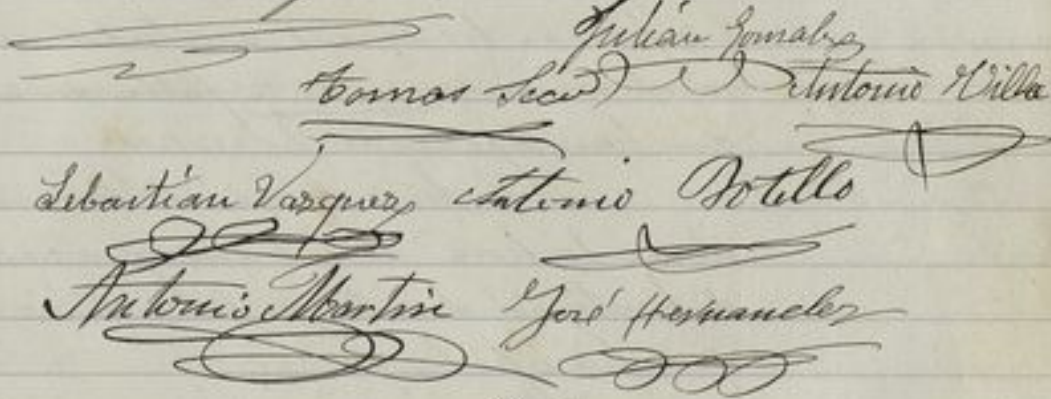 Julián Gonzalez
Tomas Antonio Villa
Sebastián Vazquez Antonio Botello
Antonio Martin José Hernandez